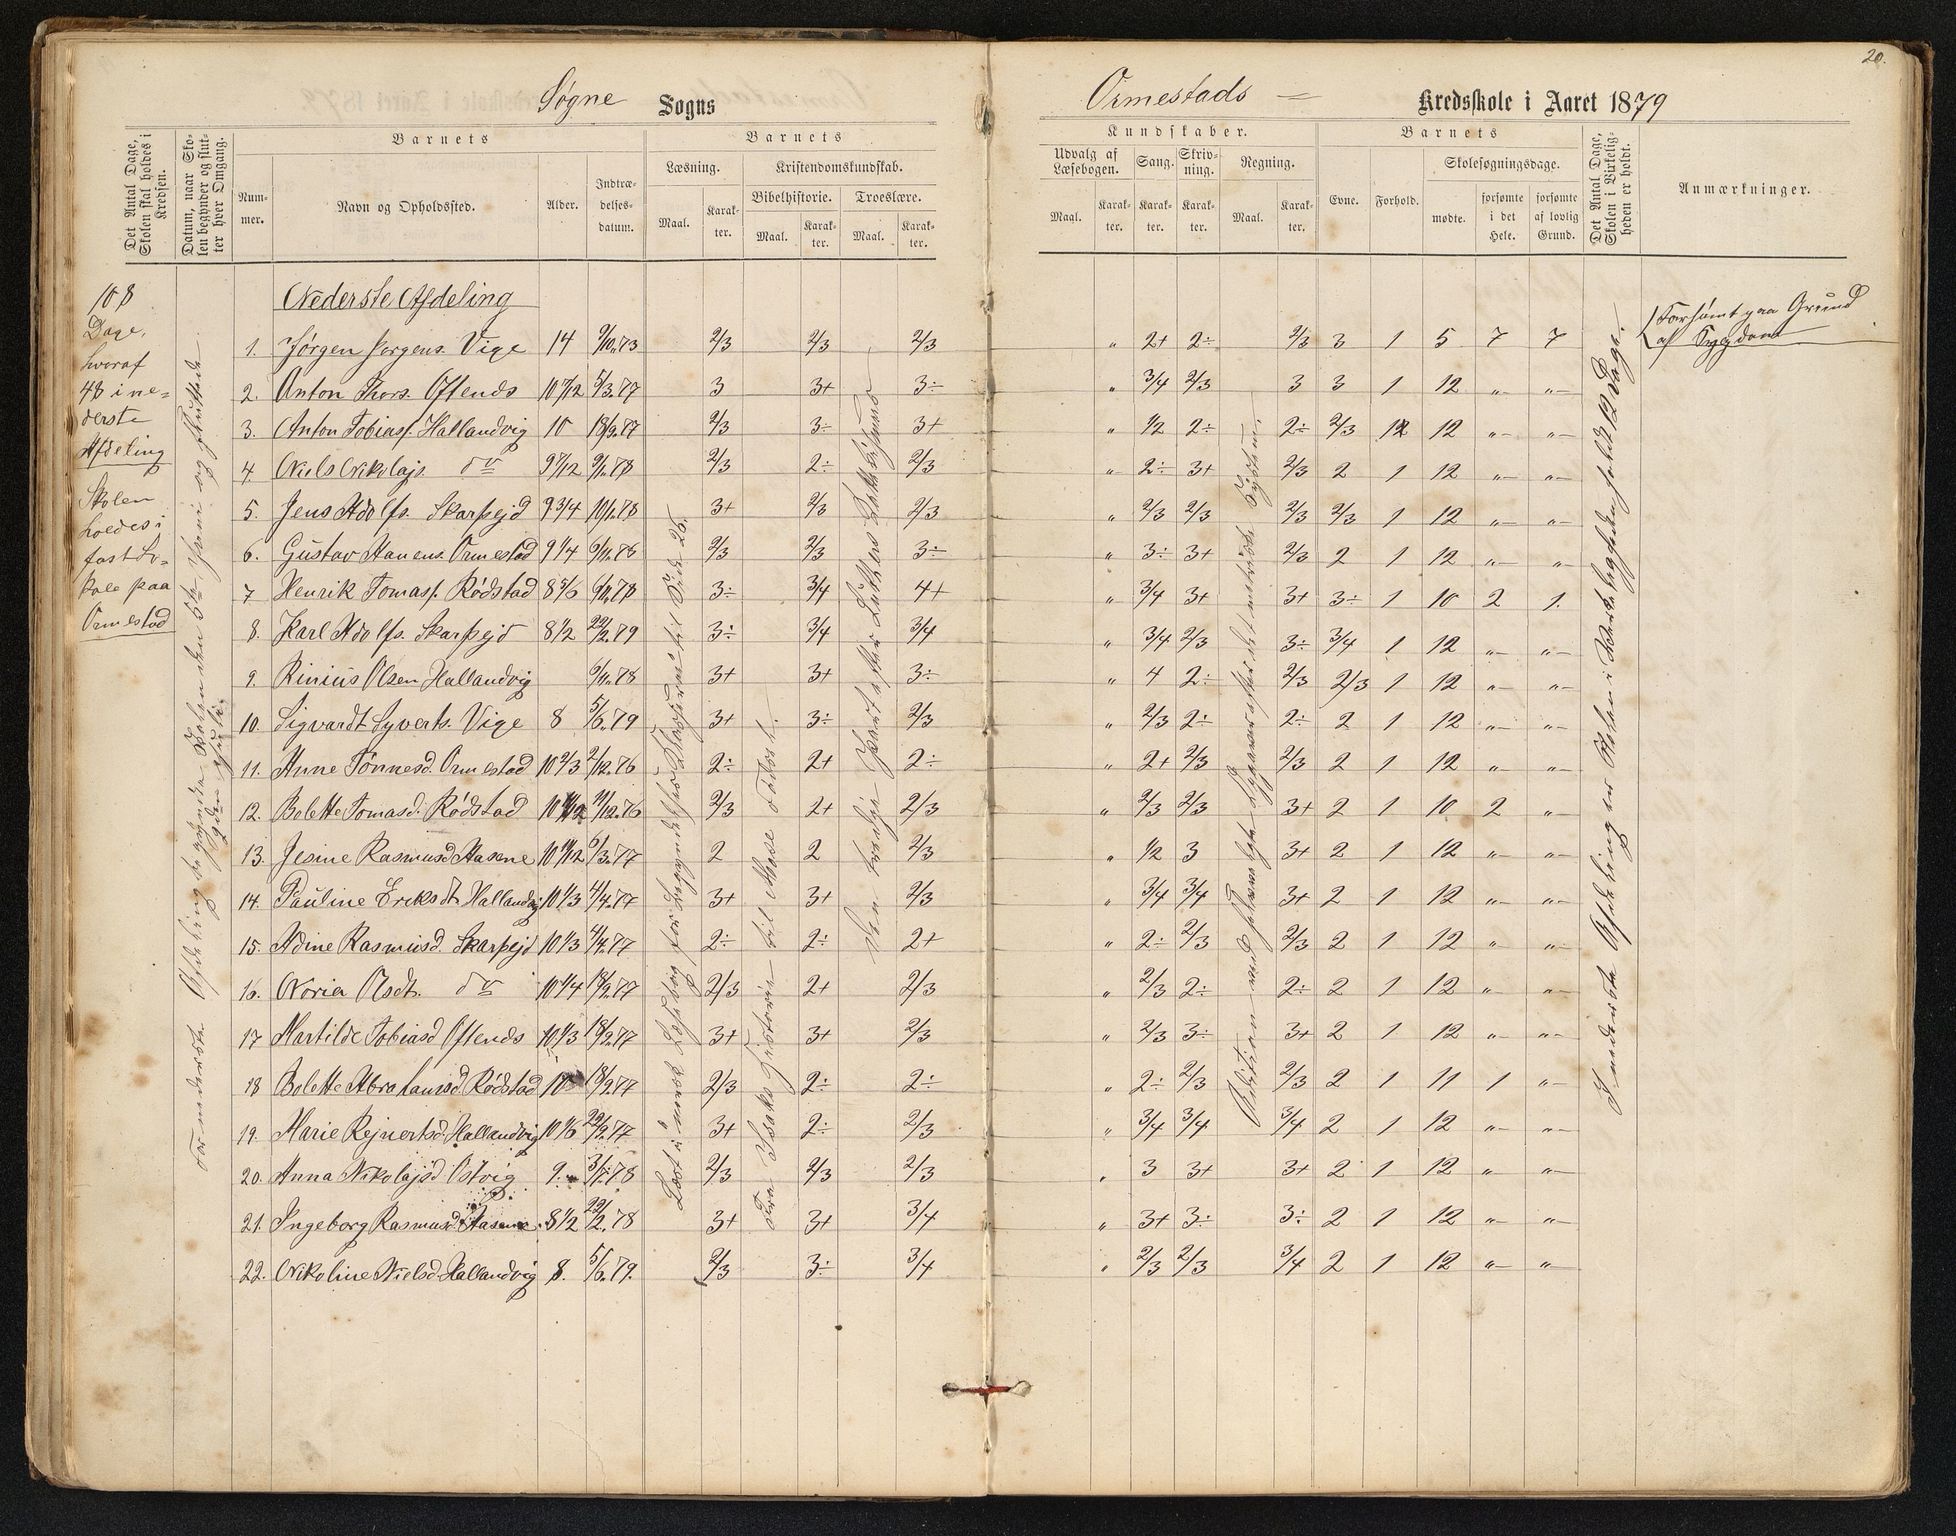 20.
Søgne Sogns
Ormestads Kredsskole i Aaret 1879
Det Antal Dage, Skolen skal holdes i Kredsen.
Datum, naar Skolen begynder og slutter hver Omgang.
Barnets
Nummer.
Navn og Opholdssted.
Alder.
Indtrædelsesdatum.
Barnets
Læsning.
Maal.
Karakter.
Kristendomskundskab.
Bibelhistorie.
Maal.
Karakter.
Troeslære.
Maal.
Karakter.
Kundskaber.
Udvalg af Læsebogen.
Maal.
Karakter.
Sang.
Karakter.
Skrivning.
Karakter.
Regning.
Maal.
Karakter.
Barnets
Evne.
Forhold.
Skolesøgningsdage.
mødte.
forsømte i det Hele.
forsømte af lovlig Grund.
Det Antal Dage, Skolen i Virkeligheden er holdt.
Anmærkninger.
108
Dage,
hvoraf
48 i ne=
derste
Afdeling
Skolen
holdes i
fast Lo=
kale paa
Ormestad
For nederste Afdeling begyndte Skolen den 5te Juni og sluttede
den Juli.
Nederste Afdeling
1. Jørgen Jørgens. Vige 14 9/10.73 2/3 2/3 2/3 " 2+ 2÷ 2/3 3 1 5 7 7
Forsømt paa Grund
af Sygdom
2. Anton Thors. Oftenes 10 7/12 5/3.77 3 3+ 3÷ " 3/4 2/3 3 3 1 12 "- "-
3. Anton Tobiasf. Hallandvig 10 18/9.77 2/3 3÷ 3+ " 1/2 2÷ 2÷ 2/3 1 12 "- "-
4. Niels Nikolajs. do 9 7/12 9/1.78 2/3 2÷ 2/3 " 2÷ 3+ 2/3 2 1 12 "- "-
5. Jens Adolfs. Skarpejd 9 3/4 10/1.78 3+ 2/3 2/3 " 2/3 2/3 2/3 2/3 1 12 "- "-
6. Gustav Hanens. Ormestad 9 1/4 6/11.78 2/3 2/3 3÷ " 3÷ 3+ 2/3 2 1 12 "- "-
7 Henrik Tomasf. Rødstad 8 5/6 6/11.78 3÷ 3/4 4+ " 3/4 3+ 3+ 3÷ 1 10 2 1.
8. Karl Adolfs. Skarpejd 8 1/2 22/2.79 3÷ 3/4 3/4 " 3/4 2/3 3÷ 3/4 1 12 "- "-
9. Rinius Olsen Hallandvig 6/11.78 3+ 3+ 3÷ " 4 2÷ 2/3 2/3 1 12 "- "-
10. Sigvardt Syverts. Vige 8 5/6.79 3+ 3÷ 2/3 " 2/3 2÷ 2÷ 2 1 12 "- "-
11. Anne Tønnesd. Ormestad 10 2/3 2/12.76 2÷ 2+ 2÷ " 2+ 2/3 2/3 2 1 12 " "-
12. Bolette Tomasd. Rødstad 10 11/12 11/12.76 2/3 2+ 2/3 " 2/3 2/3 3+ 2 1 10 2 "-
13. Jesine Rasmusd Aasene 10 11/12 6/3.77 2 2 2/3 " 1/2 3 3+ 2 1 12 "- "-
14. Pauline Eriksdt. Hallandvig 10 1/3 4/4.77 3+ 3+ 2/3 " 3/4 3/4 3+ 2 1 12 "- "-
15. Adine Rasmusd. Skarpejd 10 1/3 4/4.77 2÷ 2÷ 2+ " 2÷ 2/3 2/3 2 1 12 " "-
16. Noria Olsdt. do 10 1/4 18/9.77 2/3 2+ 2/3 " 2/3 2÷ 2÷ 2 1 12 " "-
17 Martilde Tobiasd Oftenes 10 1/3 18/9.77 3+ 3+ 2/3 " 2/3 3÷ 3+ 2 1 12 "- "-
18 Bolette Abrahamsd Rødstad 10 18/9.77 2/3 2÷ 2÷ " 2÷ 2/3 2/3 2 1 11 1 "-
19. Marie Rejnertsd. Hallandvig 10 1/6 22/9.77 3+ 2÷ 2/3 " 3/4 3/4 3/4 2 1 12 "- "-
20. Anna Nikolajsd Østvig 9. 3/7.78 2/3 2/3 2/3 " 3 3+ 3+ 2 1 12 " "-
21. Ingeborg Rasmusd. Aasene 8 1/2 22/2.78 3+ 3+ 3/4 " 3+ 3÷ 3÷ 2 1 12 " "-
22. Nikoline Nielsd. Hallandvig 8. 5/6.79. 2/3 3÷ 3/4 " 2/3 2/3 3/4 2 1 12 "- "-
Læst i norsk Læsebog for Begyndelses til Side 25.
Fra Isaks Historie til Mose
Den tredje Part efter Luthers
Addition med
I nederste Afdeling er Skolen i Virkeligheden holdt 12 Dage.